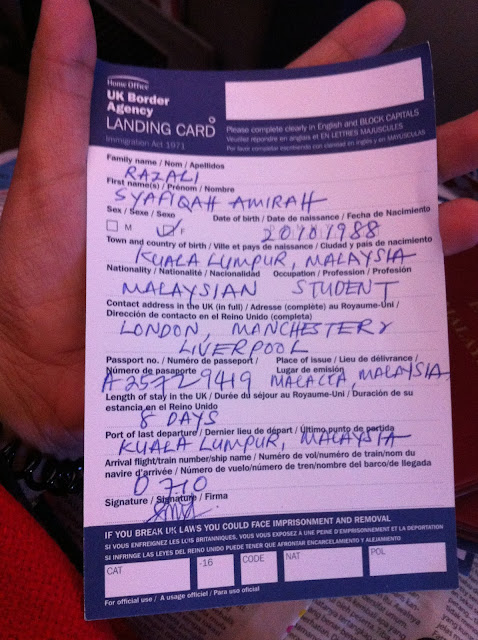 Home Office
UK Border
Agency
LANDING CARD
Immigration Act 1971
Please complete clearly in English and BLOCK CAPITALS
Veuillez répondre en anglais et EN LETTRES MAJUSCULES
Por favor completar escribiendo con claridad en inglés y en MAYÚSCULAS
Family name / Nom / Apellidos
RAZALI
First name(s) / Prénom / Nombre
SYAFIQAH AMIRAH
Sex / Sexe / Sexo
Date of birth / Date de naissance / Fecha de Nacimiento
M F
20101988
Town and country of birth / Ville et pays de naissance / Ciudad y país de nacimiento
KUALA LUMPUR, MALAYSIA
Nationality / Nationalité / Nacionalidad Occupation / Profession / Profesión
MALAYSIAN STUDENT
Contact address in the UK (in full) / Adresse (complète) au Royaume-Uni /
Dirección de contacto en el Reino Unido (completa)
LONDON, MANCHESTERY
LIVERPOOL
Passport no. / Numéro de passeport / Place of issue / Lieu de délivrance /
Número de pasaporte Lugar de emisión
A25729419 MALACCA, MALAYSIA
Length of stay in the UK / Durée du séjour au Royaume-Uni / Duración de su
estancia en el Reino Unido
8 DAYS
Port of last departure / Dernier lieu de départ / Último punto de partida
KUALA LUMPUR, MALAYSIA
Arrival flight/train number/ship name / Numéro de vol/numéro de train/nom du
navire d'arrivée / Número de vuelo/número de tren/nombre del barco/de llegada
D710
Signature / Signature / Firma
IF YOU BREAK UK LAWS YOU COULD FACE IMPRISONMENT AND REMOVAL
SI VOUS ENFREIGNEZ LES LOIS BRITANNIQUES, VOUS VOUS EXPOSEZ À UNE PEINE D'EMPRISONNEMENT ET LA DÉPORTATION
SI INFRINGE LAS LEYES DEL REINO UNIDO PUEDE TENER QUE AFRONTAR ENCARCELAMIENTO Y ALEJAMIENTO
CAT -16 CODE NAT POL
For official use / A usage officiel / Para uso oficial